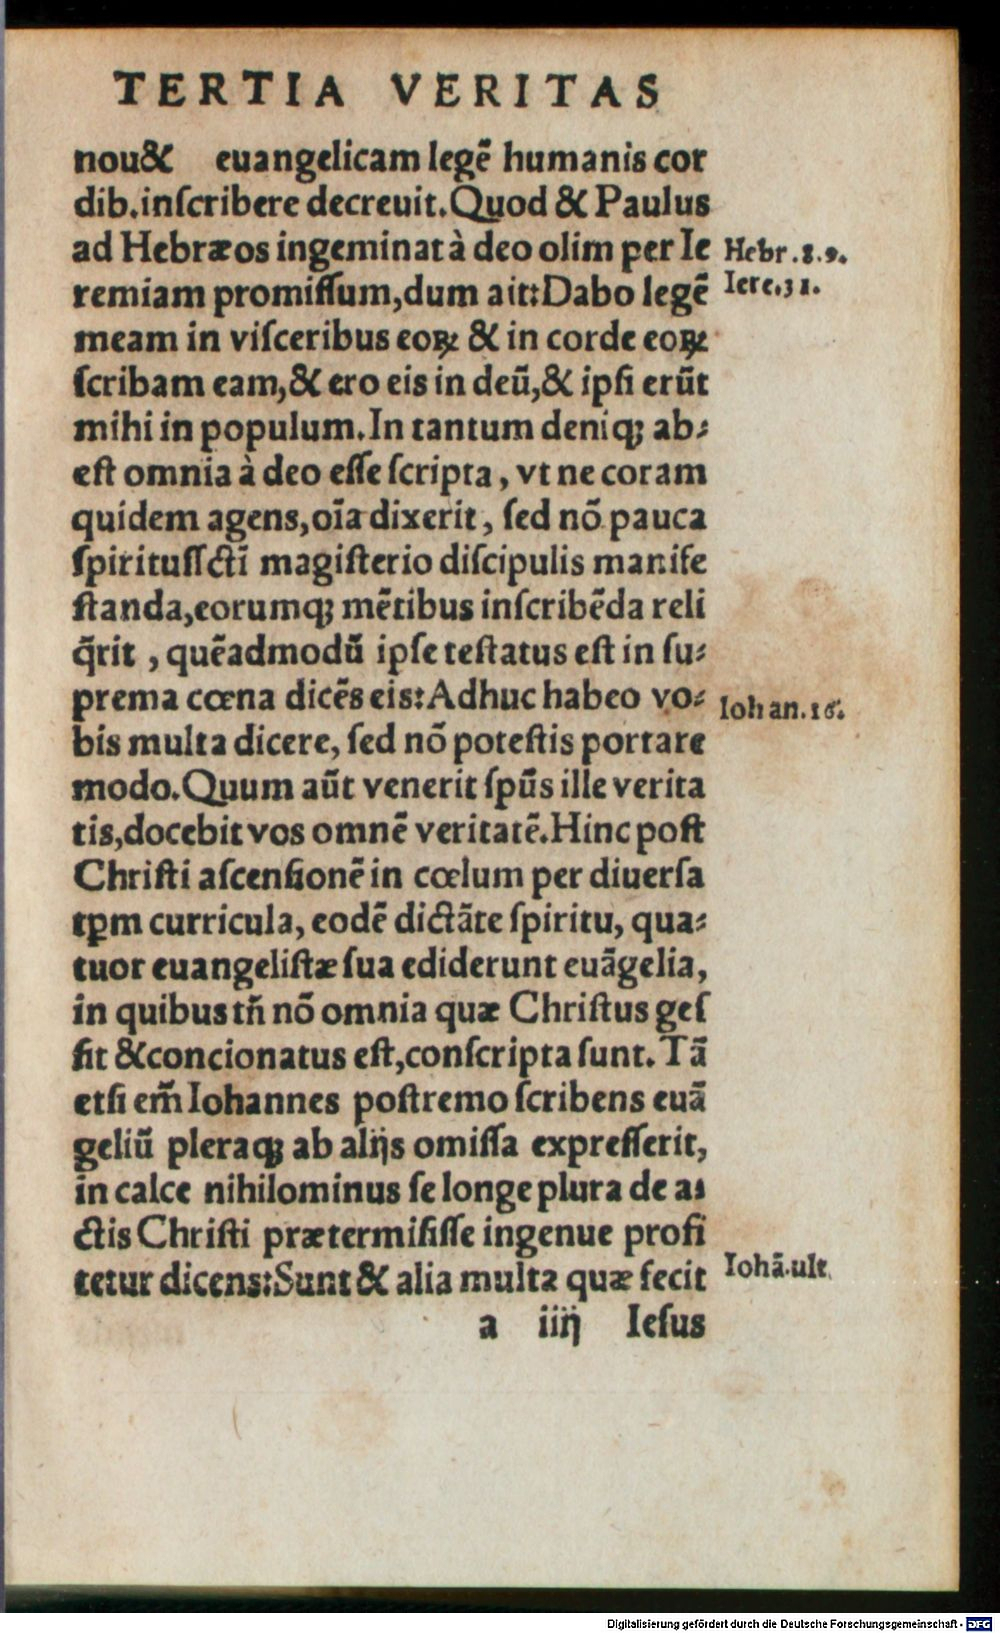 TERTIA VERITAS
nou& euangelicam legē humanis cor
dib.inſcribere decreuit.Quod & Paulus
ad Hebræos ingeminat à deo olim per Ie
Hebr.8.9.
remiam promiſſum,dum ait:Dabo legē
Iere.31.
meam in viſceribus eoꝝ & in corde eoꝝ
ſcribam eam,& ero eis in deū,& ipſi erūt
mihi in populum.In tantum deniq; ab⸗
eſt omnia à deo eſſe ſcripta, vt ne coram
quidem agens,oīa dixerit, ſed nō pauca
ſpirituſſctī magiſterio diſcipulis manife
ſtanda,eorumq; mētibus inſcribēda reli
q̄rit, quēadmodū ipſe teſtatus eſt in ſu⸗
prema cœna dicēs eis:Adhuc habeo vo⸗
Iohan.16.
bis multa dicere, ſed nō poteſtis portare
modo.Quum aūt venerit ſpūs ille verita
tis,docebit vos omnē veritatē.Hinc poſt
Chriſti aſcenſionē in cœlum per diuerſa
tꝑm curricula, eodē dictāte ſpiritu, qua⸗
tuor euangeliſtæ ſua ediderunt euāgelia,
in quibus tn̄ nō omnia quæ Chriſtus geſ
ſit &concionatus eſt,conſcripta ſunt. Tā
etſi em̄ Iohannes poſtremo ſcribens euā
geliū pleraq; ab alijs omiſſa expreſſerit,
in calce nihilominus ſe longe plura de a⸗
ctis Chriſti prætermiſiſſe ingenue profi
tetur dicens:Sunt & alia multa quæ fecit
Iohā.ult.
a iiij Ieſus
Digitalisierung gefördert durch die Deutsche Forschungsgemeinschaft - DFG